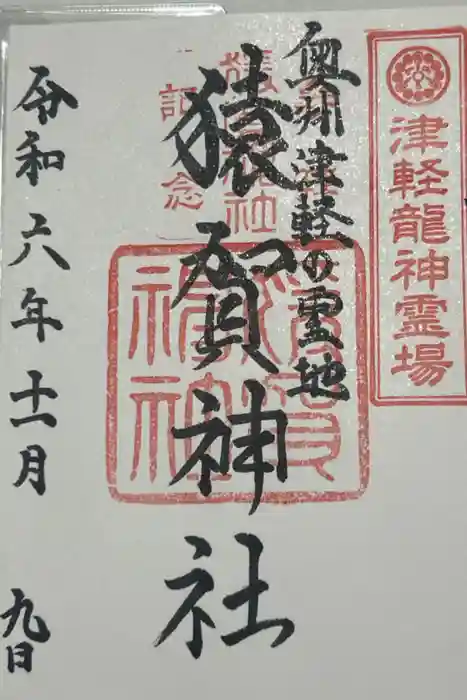 津軽龍神霊場
奥州津軽の霊地
猿賀神社
令和六年十一月
九日